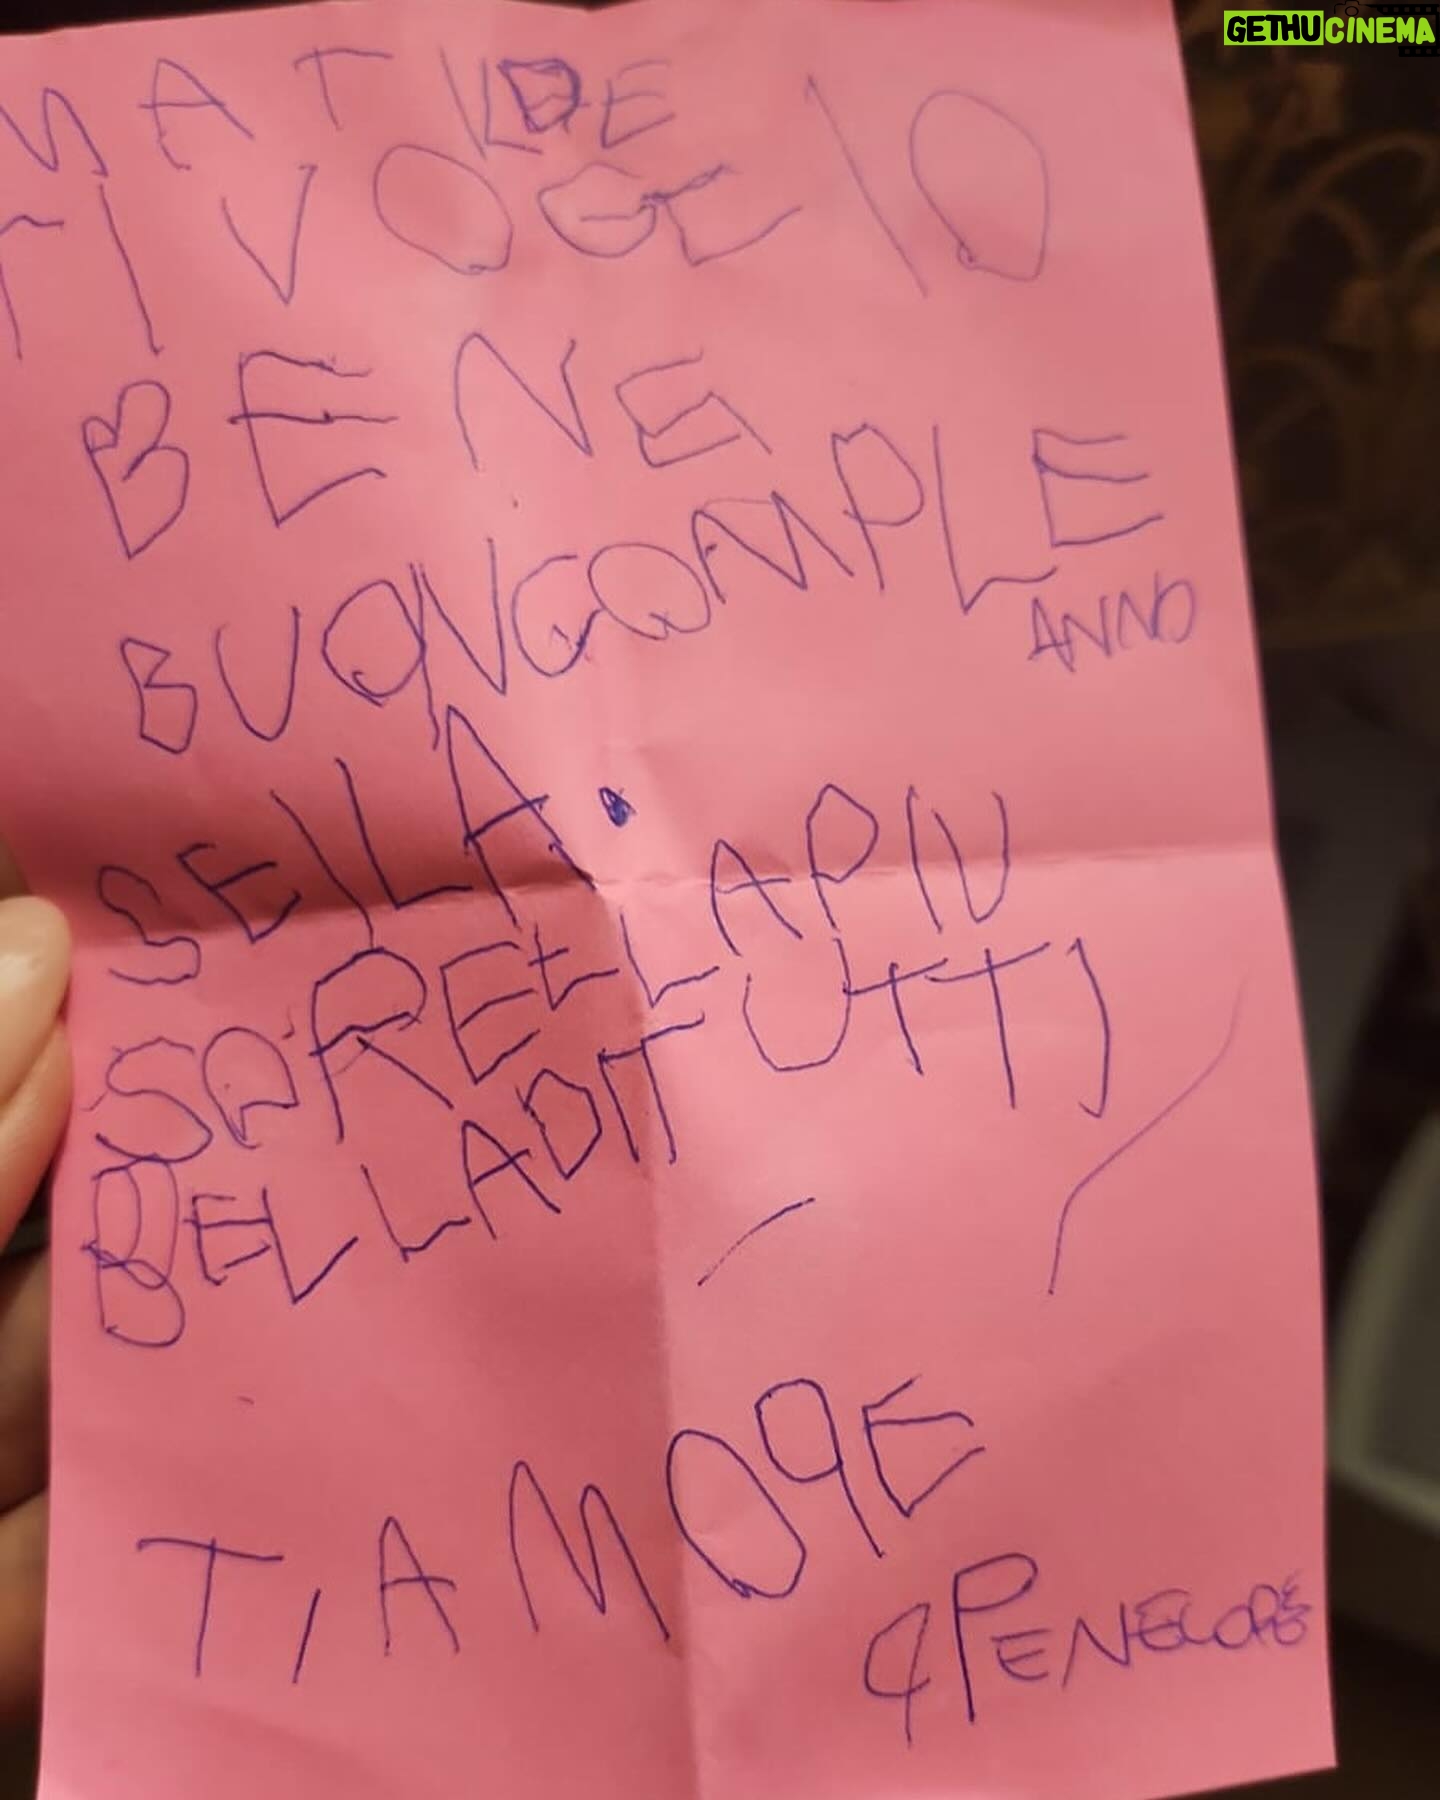 GETHUCINEMA
MATILDE
TI VOGLIO
BENE
BUON COMPLE
ANNO
SEI LA
SORELLA PIU
BELLA DI TUTTI
TI AMO
PENELOPE